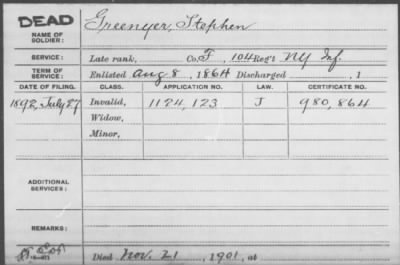 DEAD
NAME OF SOLDIER: Greenyer, Stephen
SERVICE: Late rank, Co. F, 104 Reg't NY Inf.
TERM OF SERVICE: Enlisted Aug 8, 1864 Discharged , 1
DATE OF FILING. CLASS. APPLICATION NO. LAW. CERTIFICATE NO.
1892, July 27 Invalid, 1124,123 J 980,864
Widow,
Minor,
ADDITIONAL SERVICES:
REMARKS:
Died Nov. 21, 1901, at